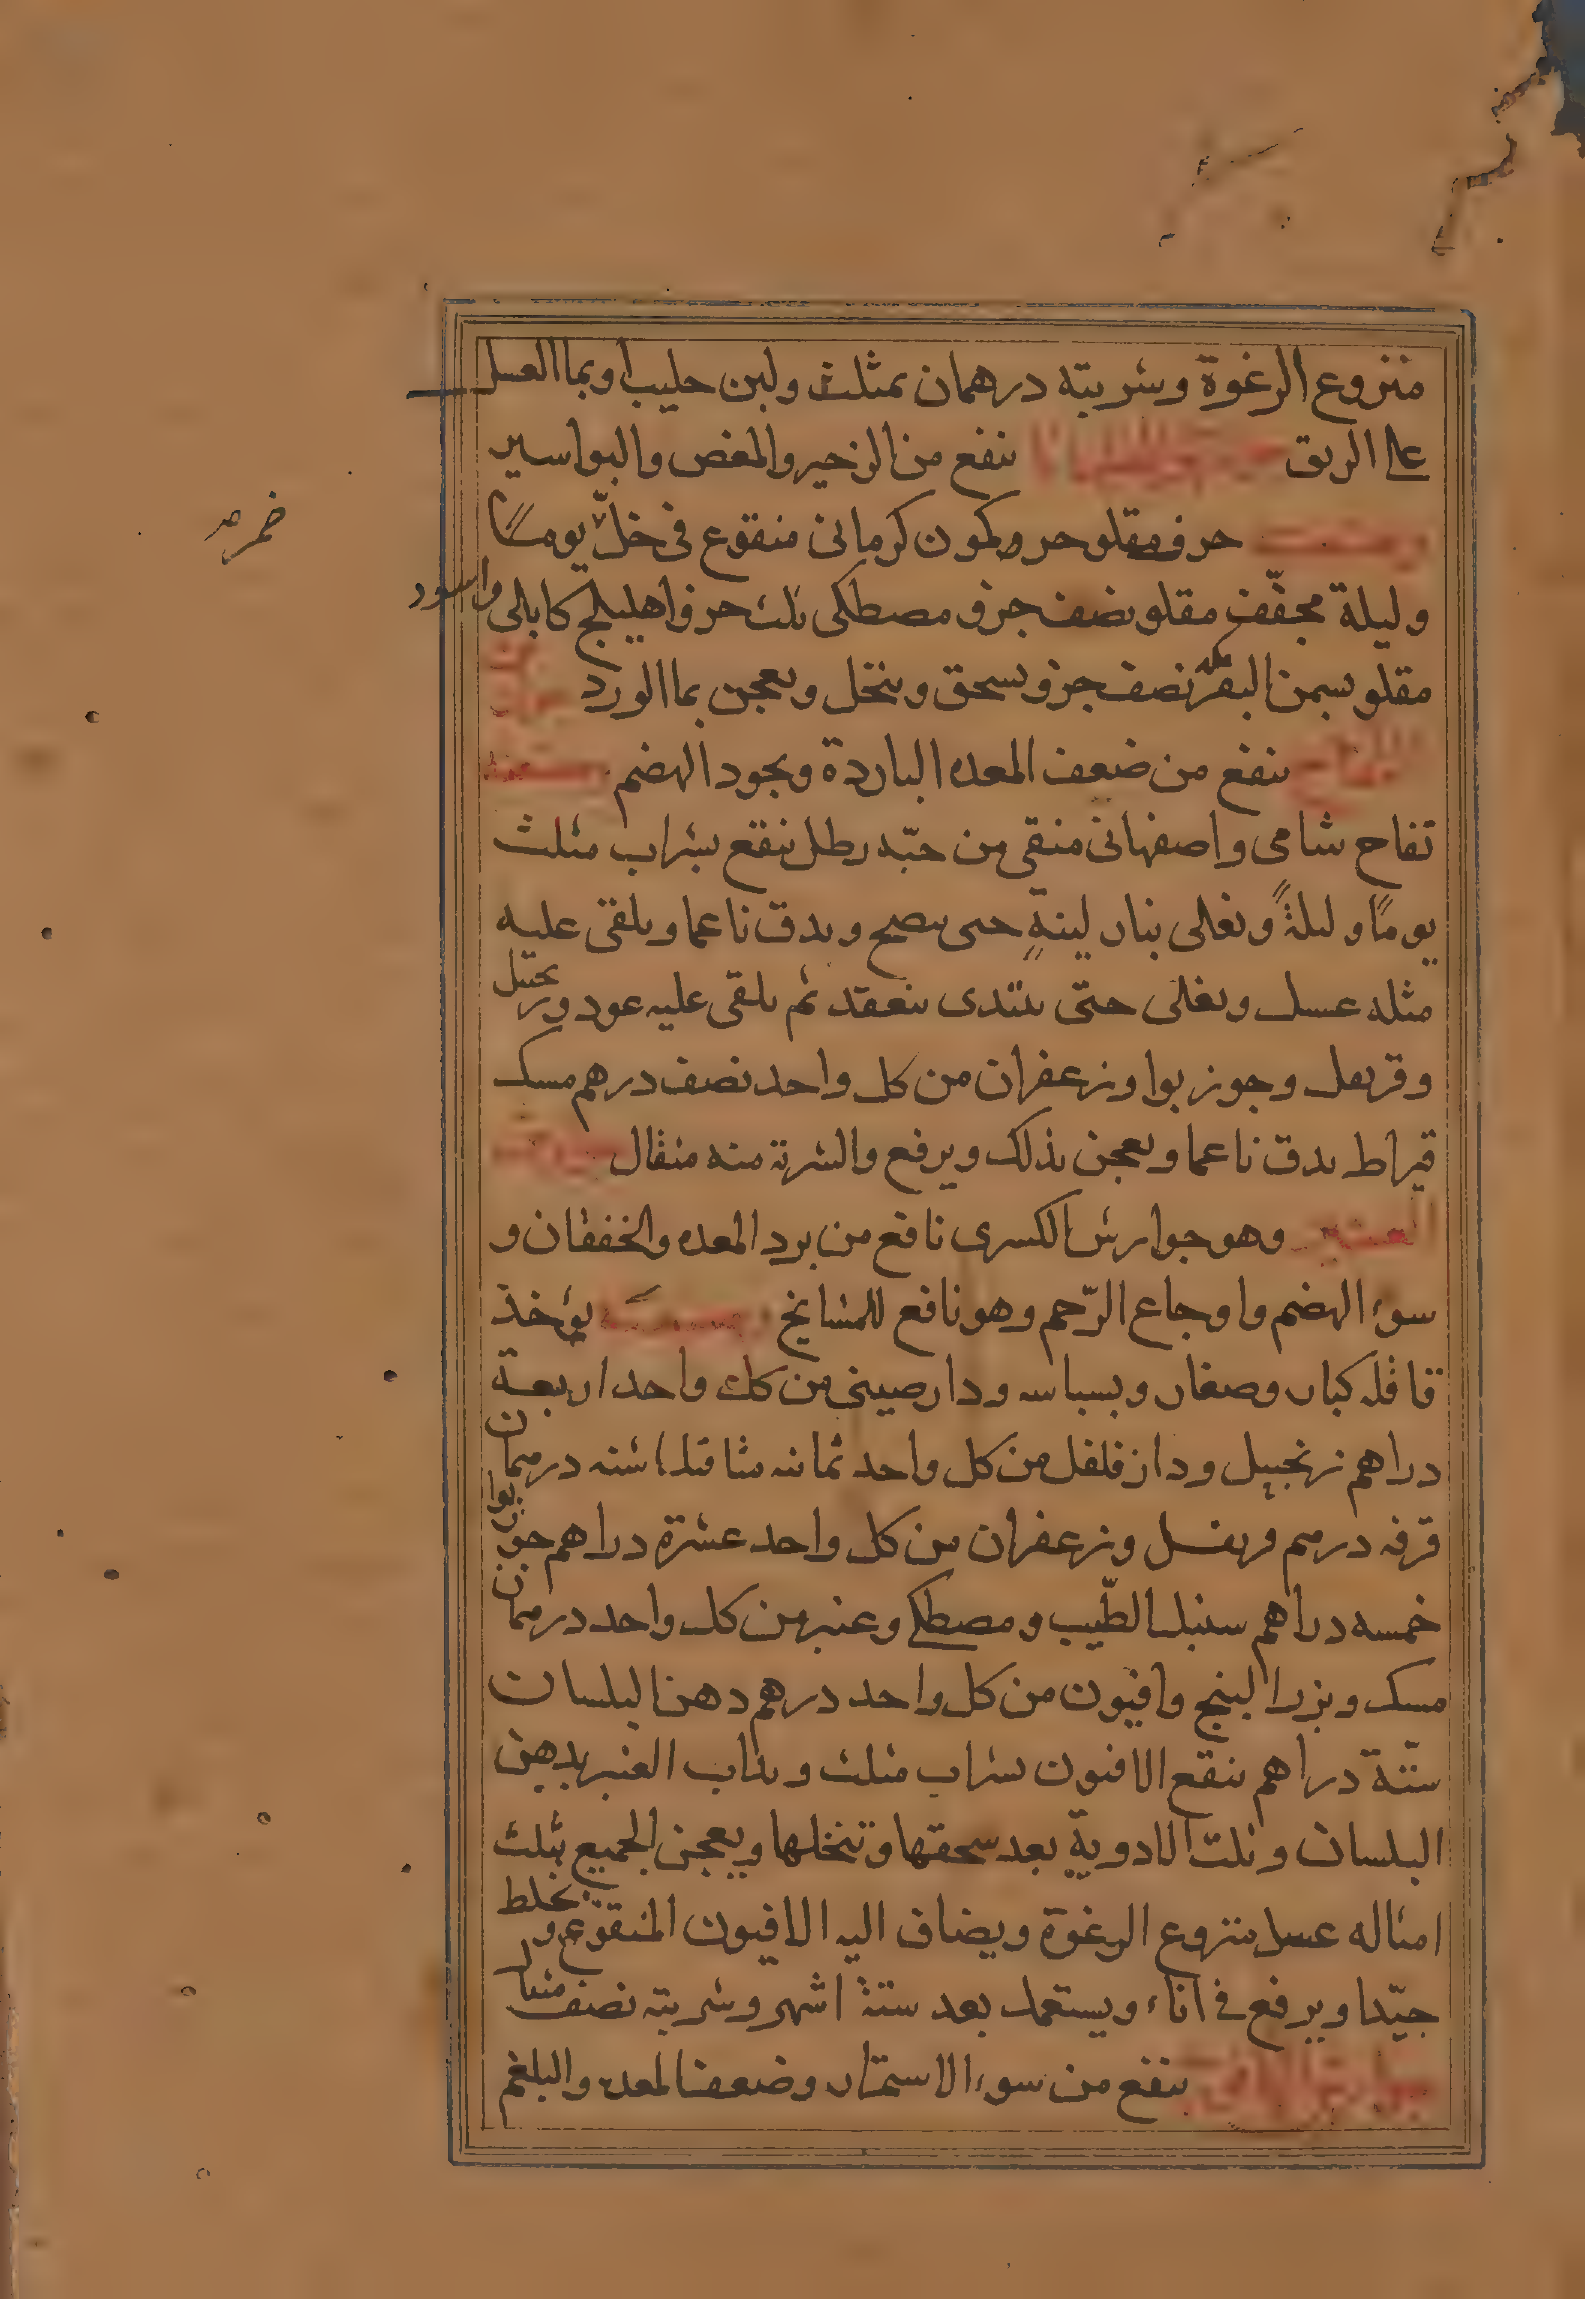 منزوع الرغوة وشربته درهمان بمثلث ولبن حليب اوبما العسل
على الريق ينفع من الزحير والمغص والبواسير
حرف مقلو جزو كمون كرمانى منقوع فى خلّ يومًا
وليلة مجفّف مقلو نصف جزو مصطكى ثلث جزو اهليلج كابلى واسود
مقلو بسمن البقر نصف جزو يسحق وينخل ويعجن بما الورد جوارش
التفاح ينفع من ضعف المعده الباردة ويجود الهضم وصنعته
تفاح شامى واصفهانى منقى من حبّه رطل ينقع بشراب مثلث
يومًا وليلةً ويغلى بنار لينةٍ حتى ينضج ويدق ناعما ويلقى عليه
مثله عسل ويغلى حتى يبتدى ينعقد ثم يلقى عليه عود وزنجبيل
وقرنفل وجوزبوا وزعفران من كل واحد نصف درهم مسك
قيراط يدق ناعما ويعجن بذلك ويرفع والشربة منه مثقال جوارش
العنبر وهو جوارش الكسرى نافع من برد المعده والخفقان و
سوء الهضم واوجاع الرّحم وهو نافع للمشايخ وصنعته يؤخذ
قاقله كبار وصغار وبسباسه ودارصينى من كل واحد اربعة
دراهم زنجبيل ودارفلفل من كل واحد ثمانيه مثاقيل اشنه درهمان
قرفه درهم قرنفل وزعفران من كل واحد عشرة دراهم جوزبوا
خمسه دراهم سنبل الطّيب ومصطكى وعنبر من كل واحد درهمان
مسك وبزر البنج وافيون من كل واحد درهم دهن البلسان
ستّة دراهم ينقع الافيون بشراب مثلث ويذاب العنبر بدهن
البلسان ويلت الادوية بعد سحقها وتنخلها ويعجن الجميع بثلث
امثاله عسل منزوع الرغوة ويضاف اليه الافيون المنقوع ويخلط
جيّدا ويرفع فى اناء ويستعمل بعد ستة اشهر وشربته نصف مثقال
ينفع من سوء الاستمراء وضعف المعده والبلغم